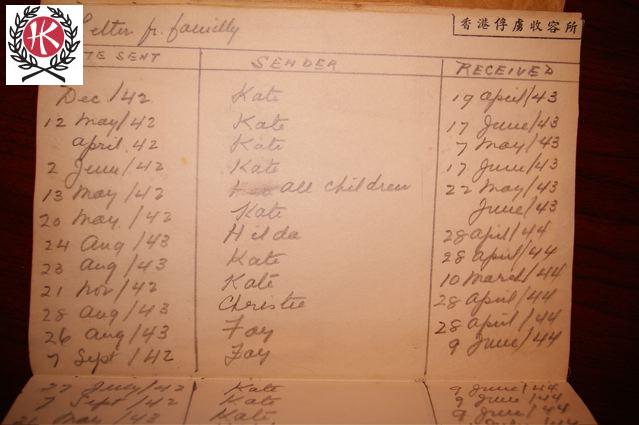 HK
Letter fr. family
香港俘虜收容所
DATE SENT SENDER RECEIVED
Dec/42 Kate 19 April/43
12 May/42 Kate 17 June/43
April 42 Kate 7 May/43
2 June/42 Kate 17 June/43
13 May/42 All children 22 May/43
20 May 42 Kate June/43
24 Aug/43 Hilda 28 April/44
23 Aug/43 Kate 28 April/44
21 Nov/42 Kate 10 March/44
28 Aug/43 Christie 28 April/44
26 Aug/43 Foy 28 April/44
7 Sept/42 Foy 9 June/44
27 July/42 Kate 9 June/44
7 Sept/42 Kate 9 June/44
21 May/43 Kate 9 June/44